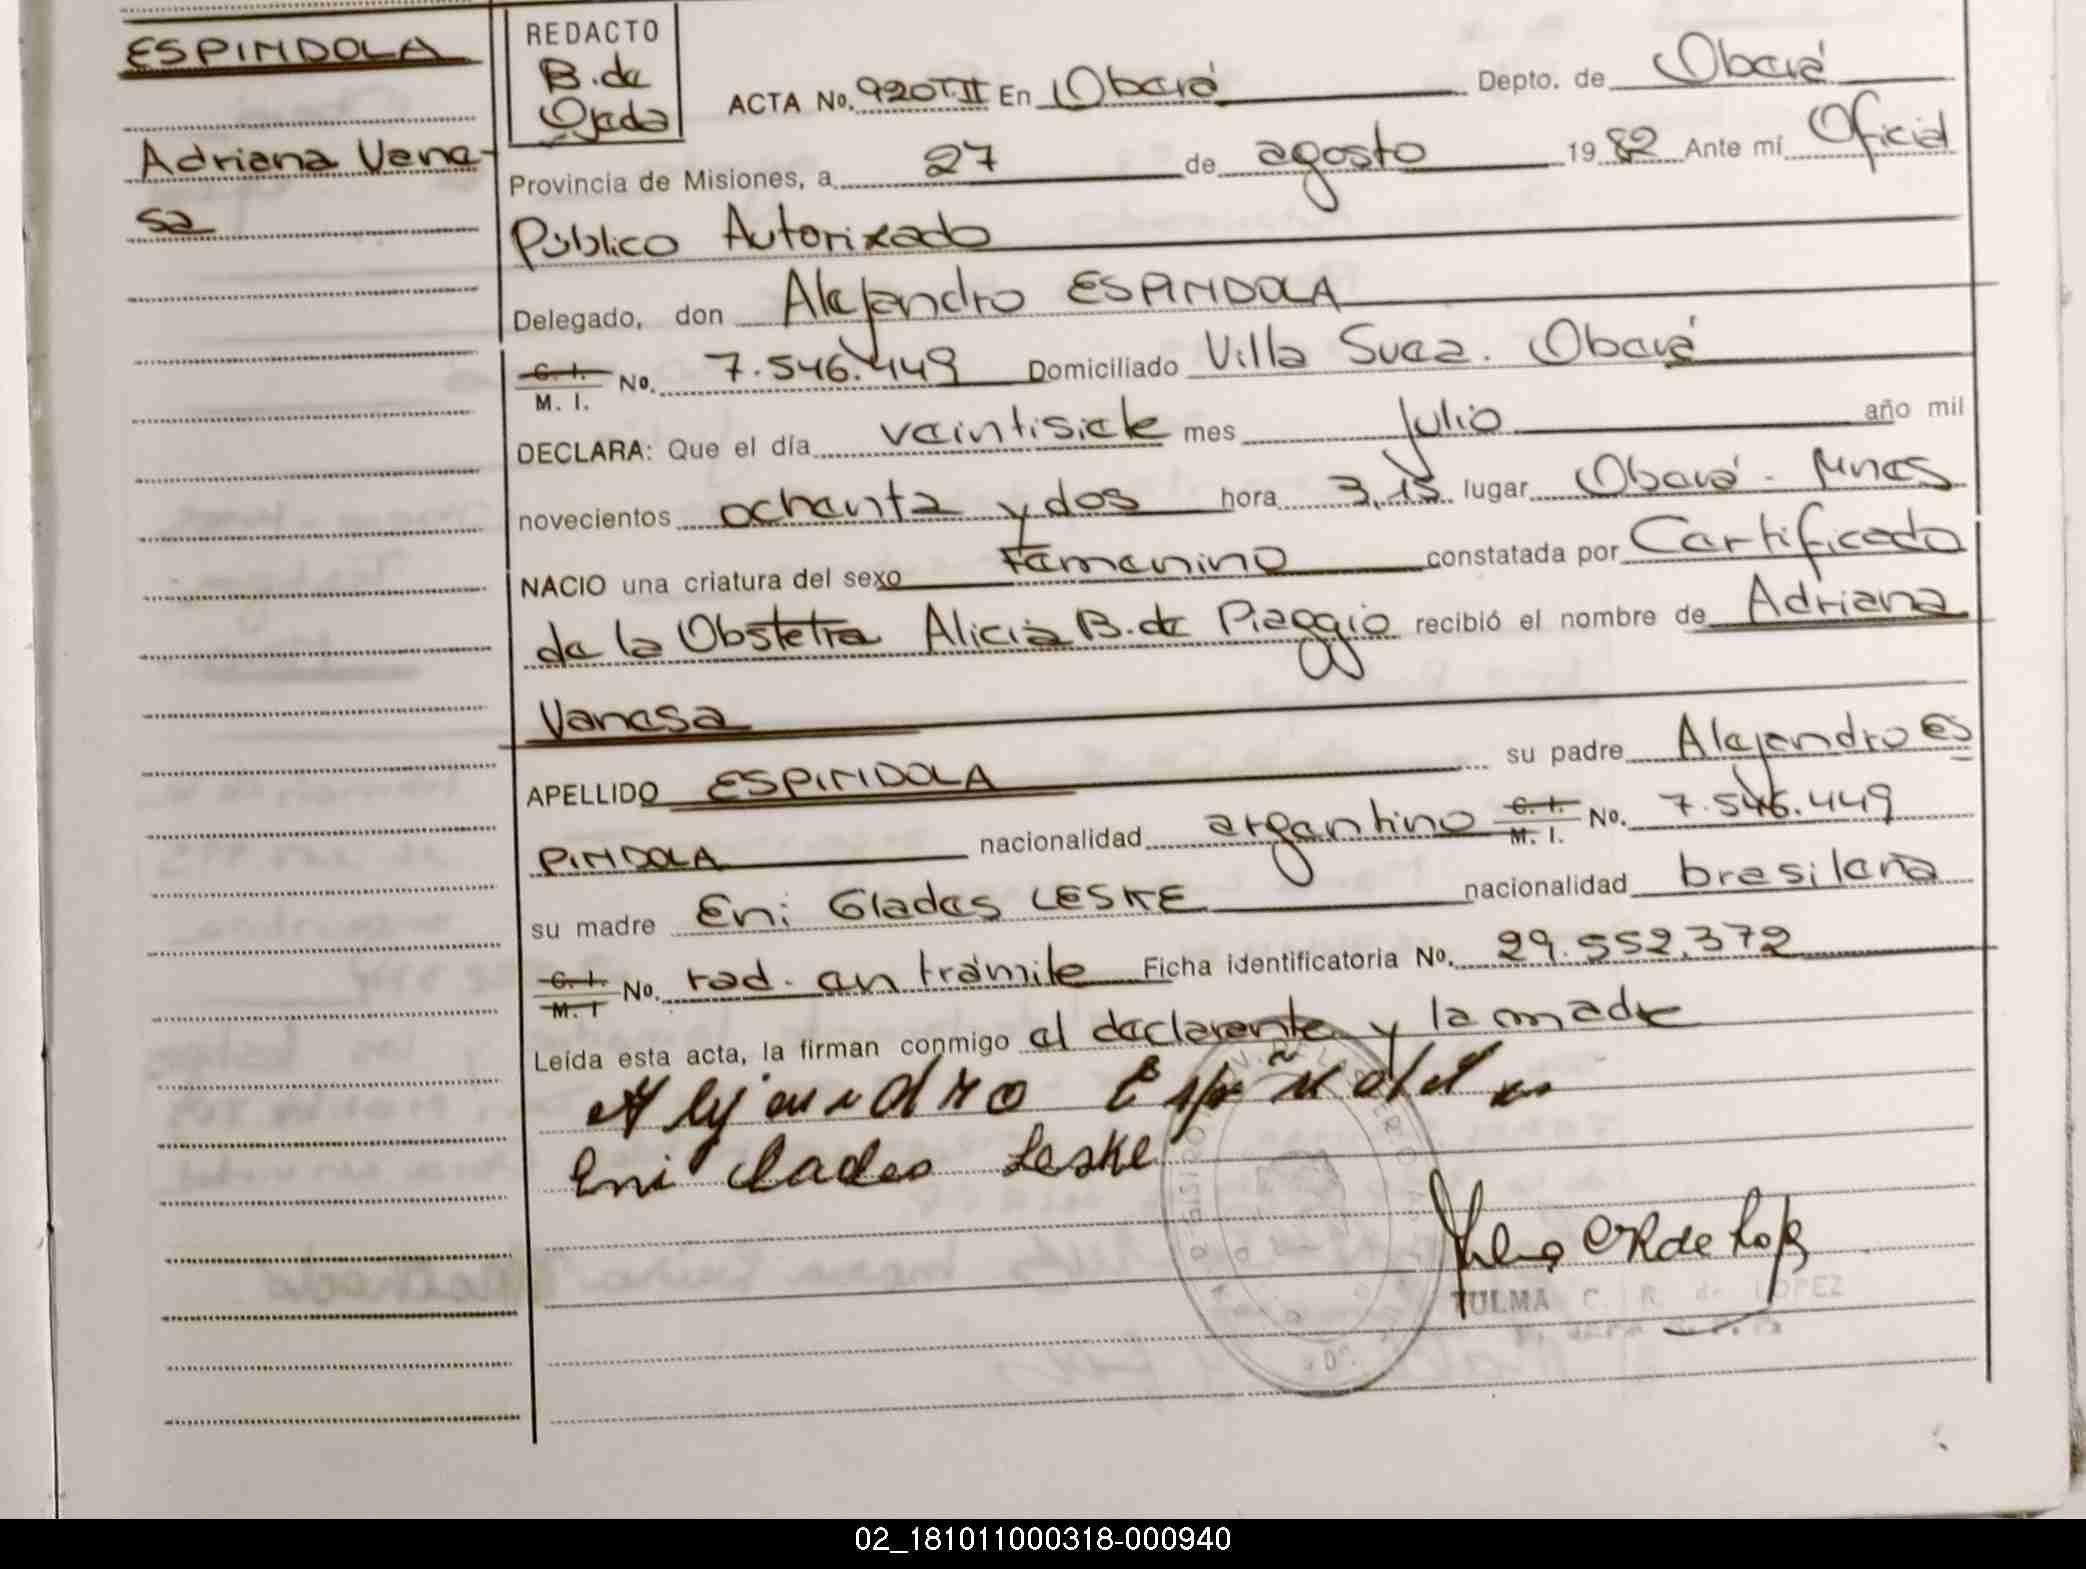 ESPINDOLA
Adriana Vane-
sa
REDACTO
B. de
Ojeda
ACTA No. 920 T.II En Oberá Depto. de Oberá
Provincia de Misiones, a 27 de agosto 1982 Ante mí Oficial
Público Autorizado
Delegado, don Alejandro ESPINDOLA
C. I.
M. I. No. 7.546.449 Domiciliado Villa Svea. Oberá
DECLARA: Que el día veintisiete mes julio año mil
novecientos ochenta y dos hora 3,15 lugar Oberá - Mnes
NACIO una criatura del sexo femenino constatada por Certificado
de la Obstetra Alicia B. de Piaggio recibió el nombre de Adriana
Vanesa
APELLIDO ESPINDOLA su padre Alejandro ES
PINDOLA nacionalidad argentino C. I.
M. I. No. 7.546.449
su madre Eni Glades LESKE nacionalidad brasileña
C. I.
M. I No. rad. en trámite Ficha identificatoria No. 29.552.372
Leída esta acta, la firman conmigo el declarante y la madre
Alejandro Espindola
Eni Clades Leske
TULMA C. R. de LOPEZ
02_181011000318-000940